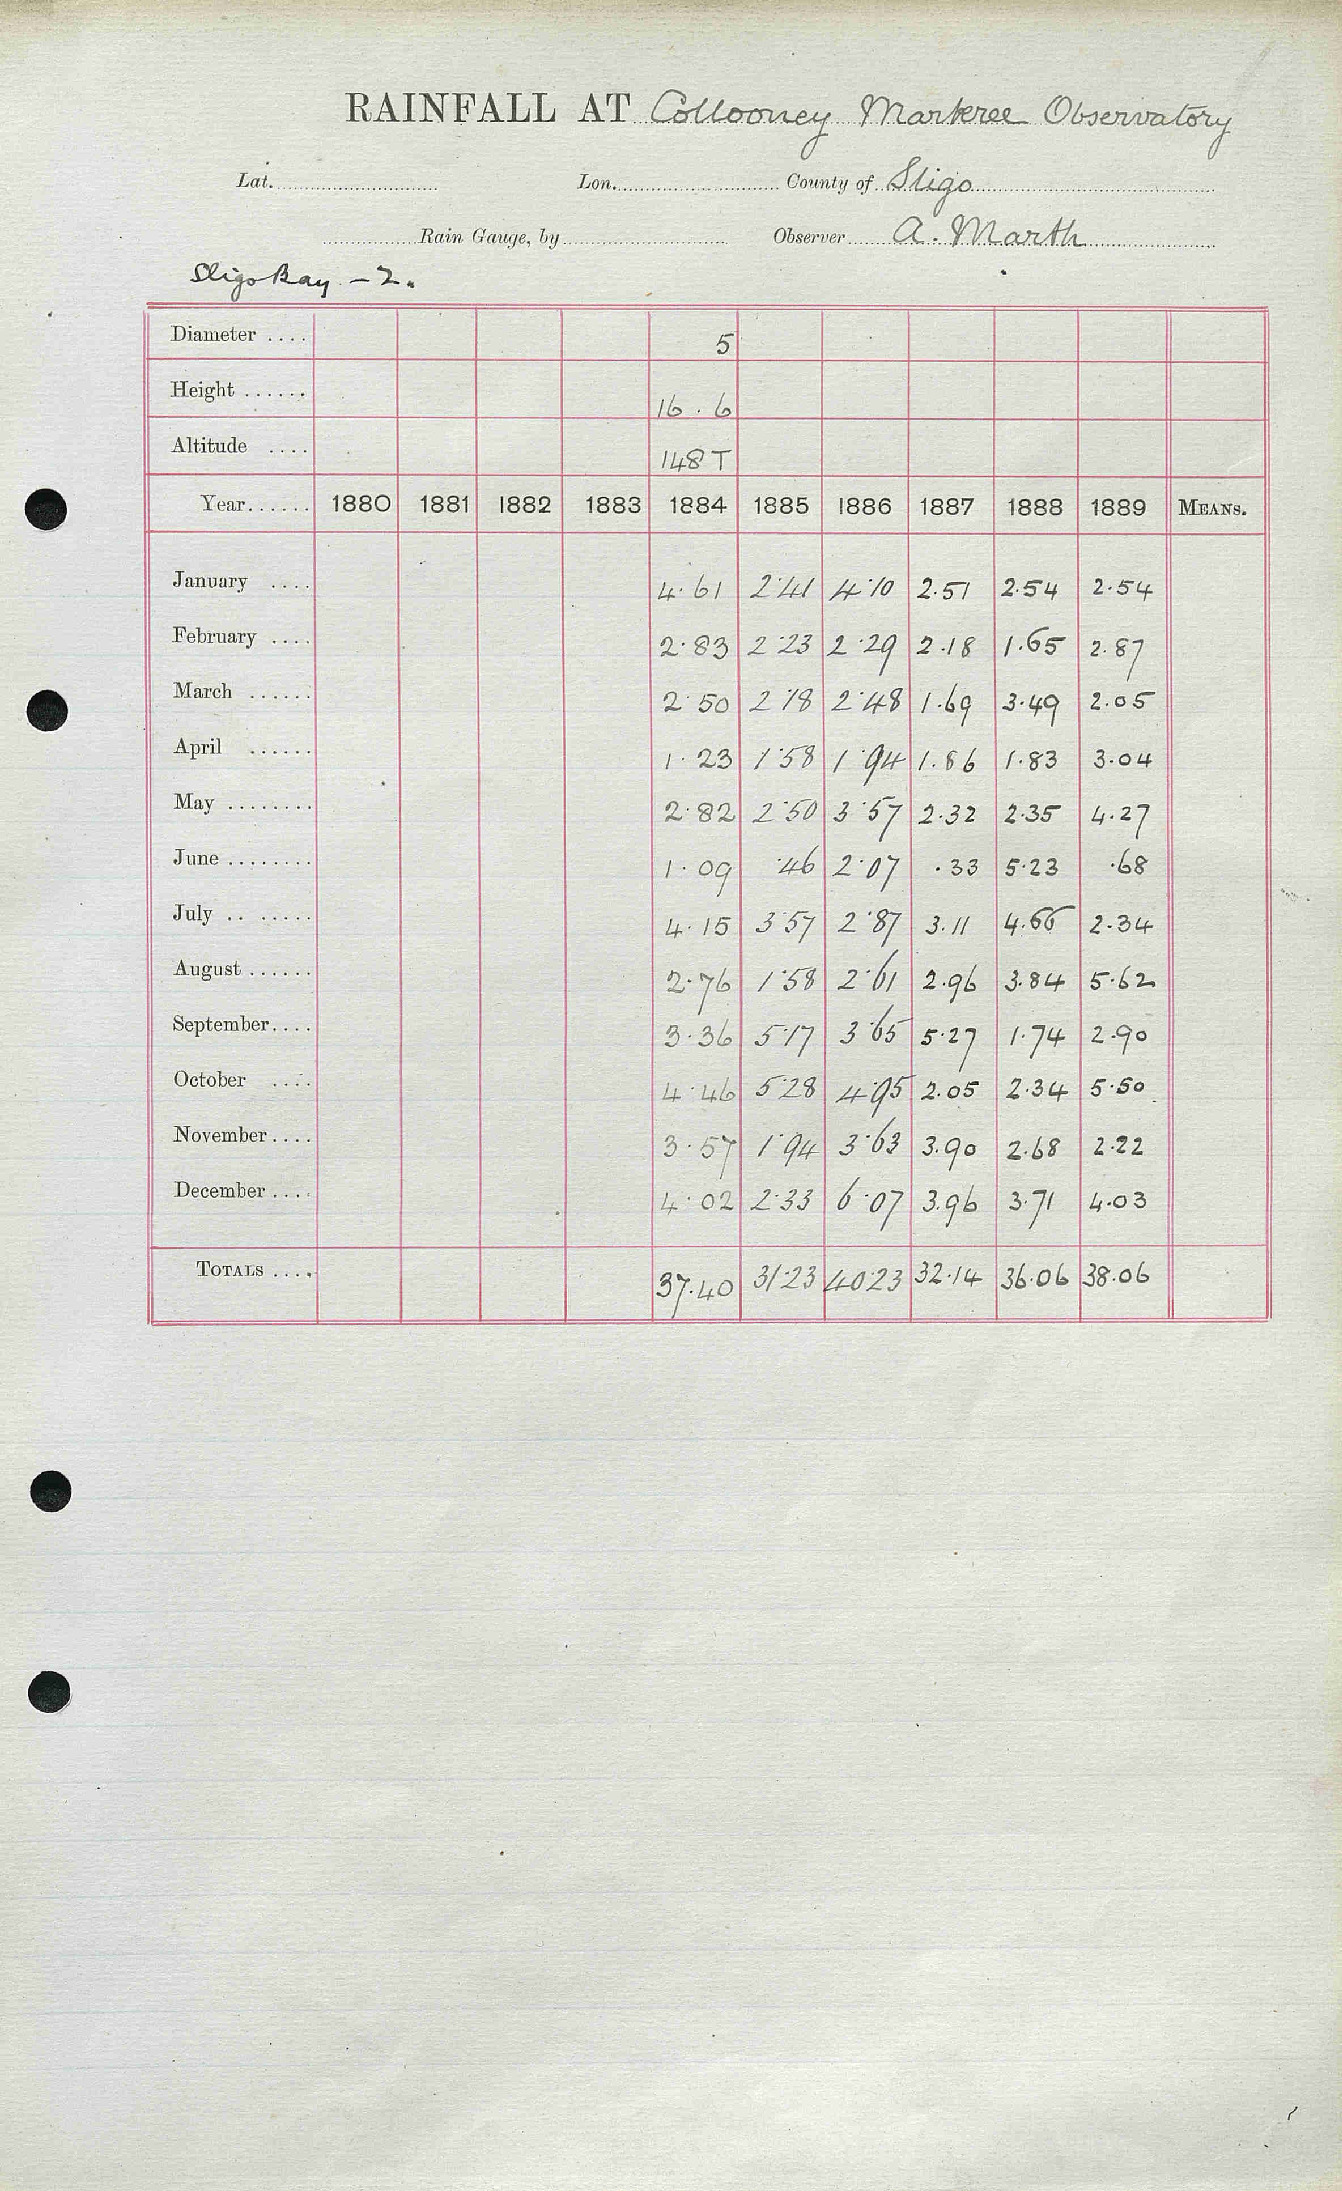 RAINFALL AT Collooney Markree Observatory
Lat. Lon. County of Sligo
Rain Gauge, by Observer A. Marth
Sligo Bay - 2.
Diameter .... 5
Height ...... 16.6
Altitude .... 148 T
Year...... 1880 1881 1882 1883 1884 1885 1886 1887 1888 1889 MEANS.
January .... 4.61 2.41 4.10 2.51 2.54 2.54
February .... 2.83 2.23 2.29 2.18 1.65 2.87
March ...... 2.50 2.18 2.48 1.69 3.49 2.05
April ...... 1.23 1.58 1.94 1.86 1.83 3.04
May ........ 2.82 2.50 3.57 2.32 2.35 4.27
June ........ 1.09 .46 2.07 .33 5.23 .68
July .. ..... 4.15 3.57 2.87 3.11 4.66 2.34
August ...... 2.76 1.58 2.61 2.96 3.84 5.62
September.... 3.36 5.17 3.65 5.27 1.74 2.90
October .... 4.46 5.28 4.95 2.05 2.34 5.50
November.... 3.57 1.94 3.63 3.90 2.68 2.22
December .... 4.02 2.33 6.07 3.96 3.71 4.03
TOTALS .... 37.40 31.23 40.23 32.14 36.06 38.06